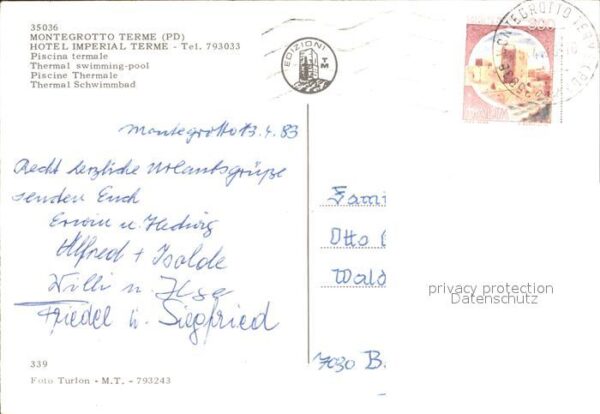 35036
MONTEGROTTO TERME (PD)
HOTEL IMPERIAL TERME - Tel. 793033
Piscina termale
Thermal swimming-pool
Piscine Thermale
Thermal Schwimmbad
EDIZIONI
TM
300
ITALIA
MONTEGROTTO TERME (PD)
Montegrotto 13.4.83
Recht herzliche Urlaubsgrüße
senden Euch
Erwin u. Hedwig
Alfred + Isolde
Willi u. Ilse
Friedel u. Siegfried
Fami
Otto
Wald
7030 B
privacy protection
Datenschutz
339
Foto Turlon - M.T. - 793243